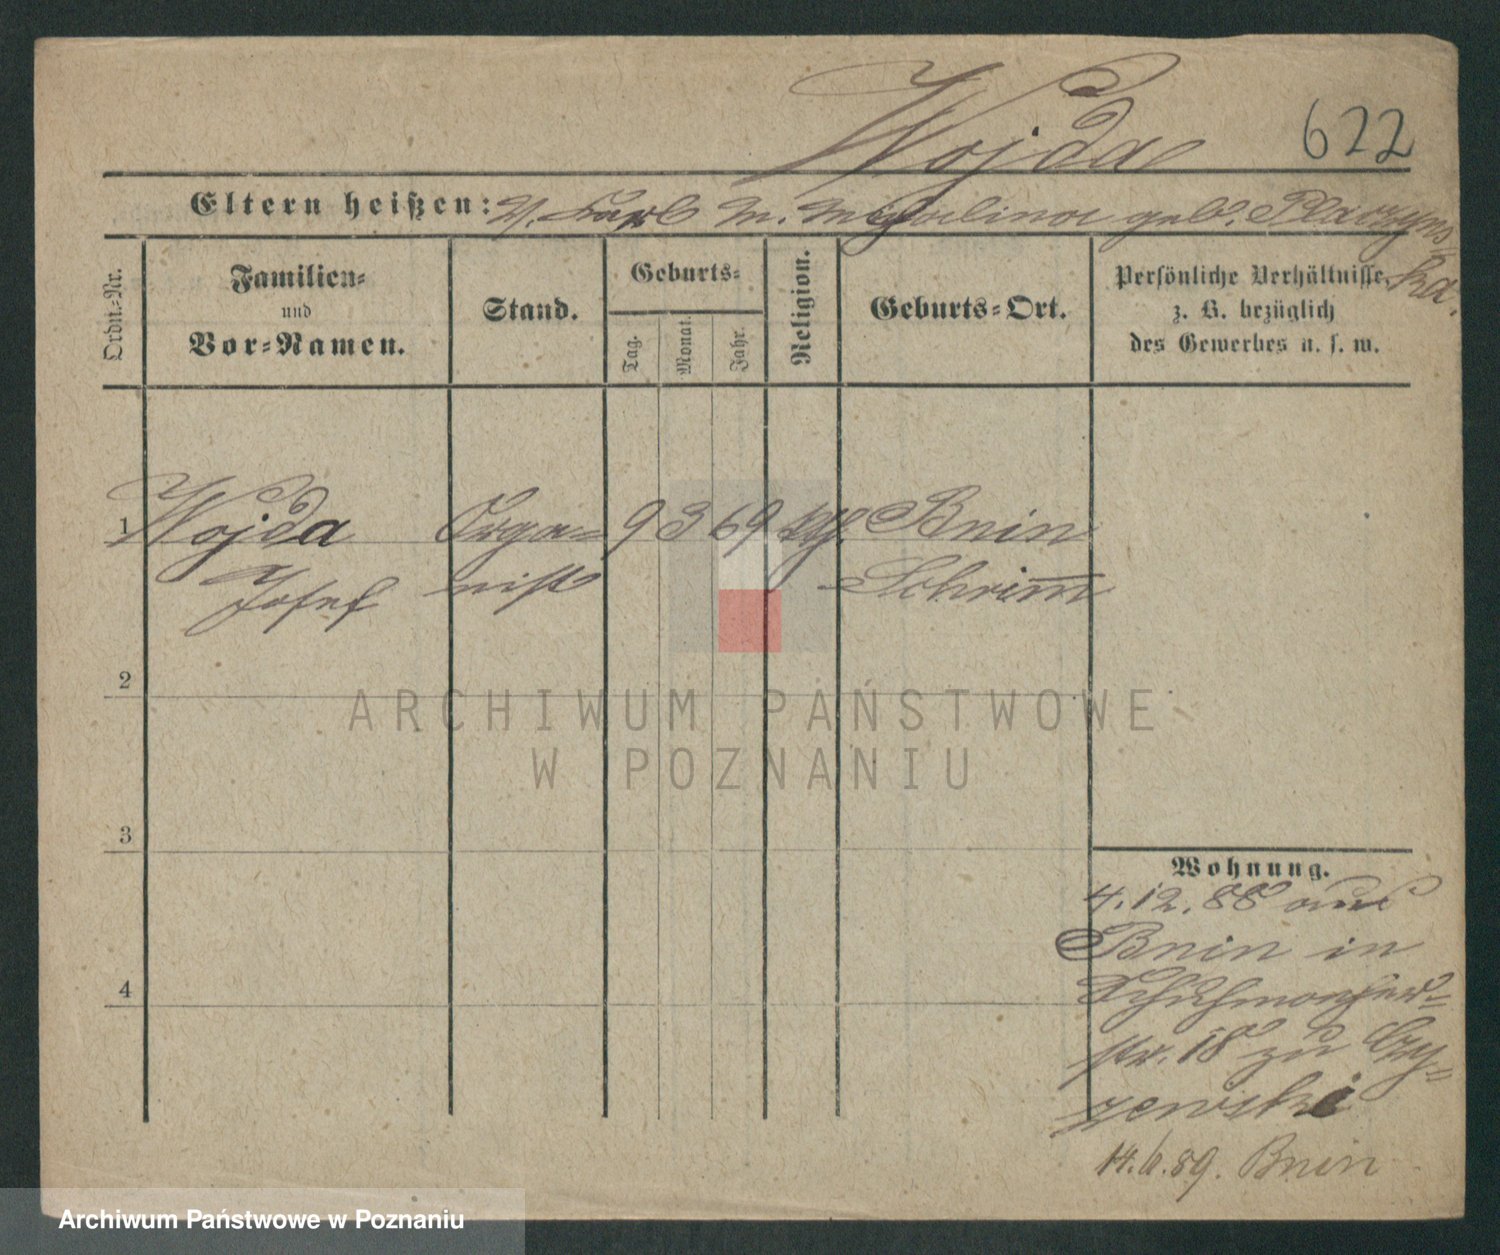 Wojda
622
Eltern heißen: V. Karl M. Michalina geb. Placzyns
ka.
Ordn.-Nr.
Familien-
und
Vor-Namen.
Stand.
Geburts-
Tag.
Monat.
Jahr.
Religion.
Geburts-Ort.
Persönliche Verhältnisse
z. B. bezüglich
des Gewerbes u. s. w.
1 Wojda Orga= 9 3 69 kth. Bnin
Josef nist Schrimm
2
3
4
Wohnung.
4.12.88 aus
Bnin in
Schuhmacher=
str. 18 zu Czy=
zewski
14.6.89. Bnin
ARCHIWUM PAŃSTWOWE
W POZNANIU
Archiwum Państwowe w Poznaniu